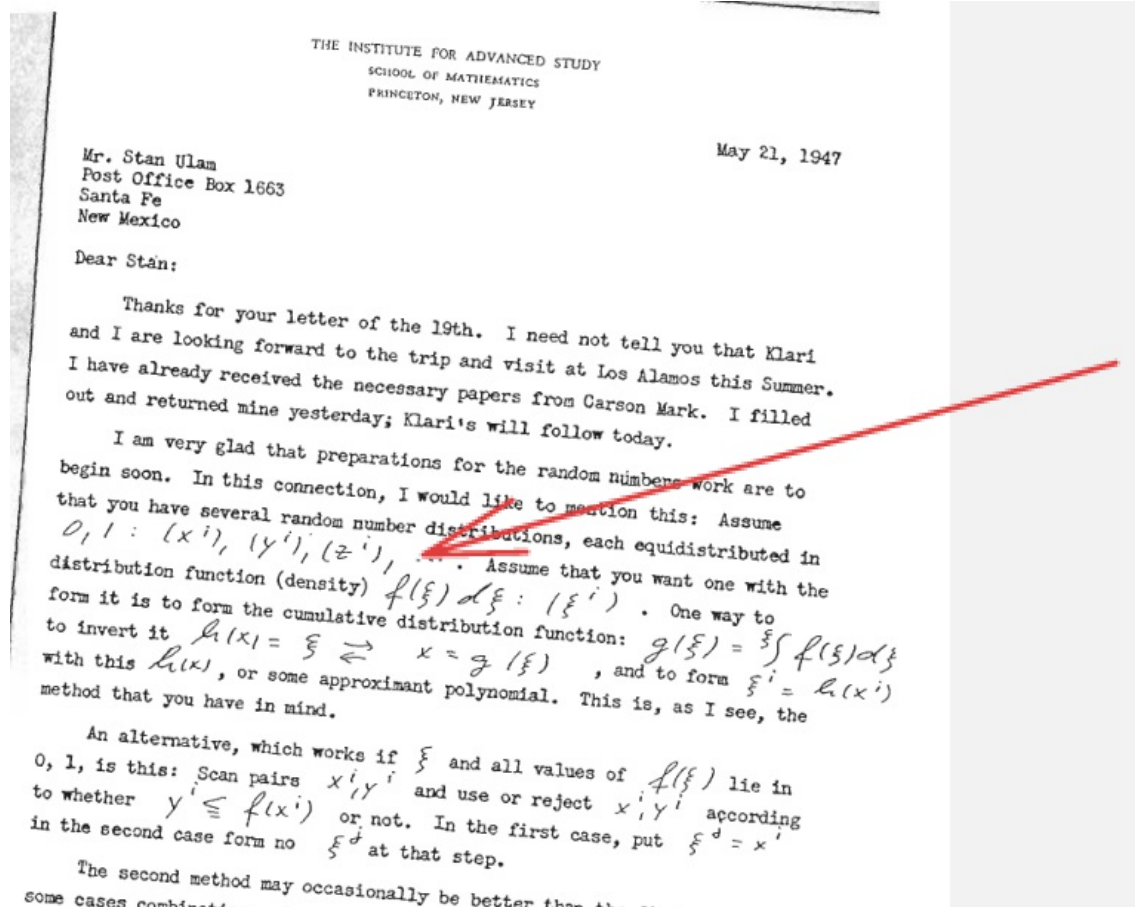 THE INSTITUTE FOR ADVANCED STUDY
SCHOOL OF MATHEMATICS
PRINCETON, NEW JERSEY
May 21, 1947
Mr. Stan Ulam
Post Office Box 1663
Santa Fe
New Mexico
Dear Stan:
Thanks for your letter of the 19th. I need not tell you that Klari
and I are looking forward to the trip and visit at Los Alamos this Summer.
I have already received the necessary papers from Carson Mark. I filled
out and returned mine yesterday; Klari's will follow today.
I am very glad that preparations for the random numbers work are to
begin soon. In this connection, I would like to mention this: Assume
that you have several random number distributions, each equidistributed in
0, 1 : (x^i), (y^i), (z^i), .... Assume that you want one with the
distribution function (density) f(ξ) dξ : (ξ^i) . One way to
form it is to form the cumulative distribution function: g(ξ) = ^ξ∫ f(ξ)dξ
to invert it h(x) = ξ ⇄ x = g(ξ) , and to form ξ^i = h(x^i)
with this h(x), or some approximant polynomial. This is, as I see, the
method that you have in mind.
An alternative, which works if ξ and all values of f(ξ) lie in
0, 1, is this: Scan pairs x^i, y^i and use or reject x^i, y^i according
to whether y^i ≦ f(x^i) or not. In the first case, put ξ^j = x^i
in the second case form no ξ^j at that step.
The second method may occasionally be better than the
some cases